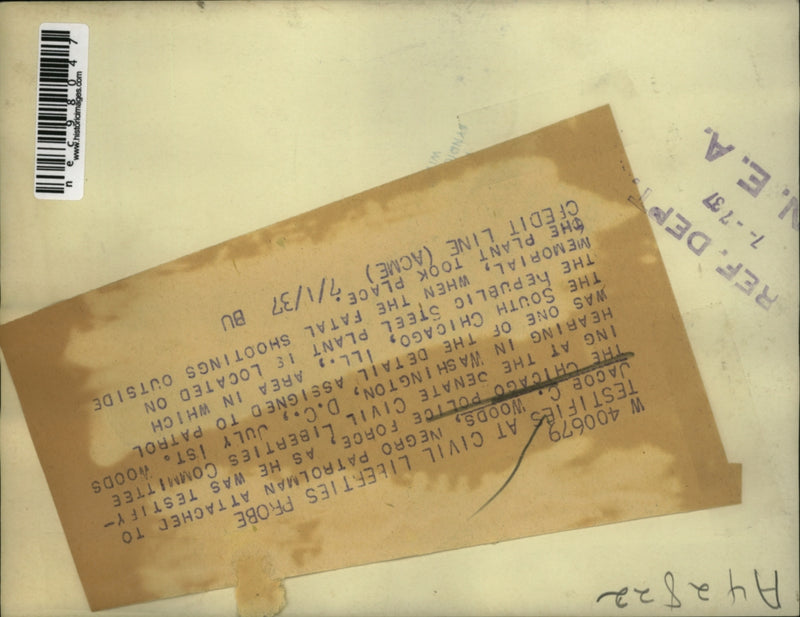 nec98047
www.historicimages.com
W 400679
TESTIFIES AT CIVIL LIBERTIES PROBE
JACOB C. WOODS, NEGRO PATROLMAN ATTACHED TO
THE CHICAGO POLICE FORCE, AS HE WAS TESTIFY-
ING AT THE SENATE CIVIL LIBERTIES COMMITTEE
HEARING IN WASHINGTON, D.C., JULY 1ST. WOODS
WAS ONE OF THE DETAIL ASSIGNED TO PATROL
THE SOUTH CHICAGO, ILL., AREA IN WHICH
THE REPUBLIC STEEL PLANT IS LOCATED ON
MEMORIAL, WHEN THE FATAL SHOOTINGS OUTSIDE
THE PLANT TOOK PLACE.
CREDIT LINE (ACME) 7/1/37 BU
REF. DEPT.
7-7 37
N. E. A.
A42822